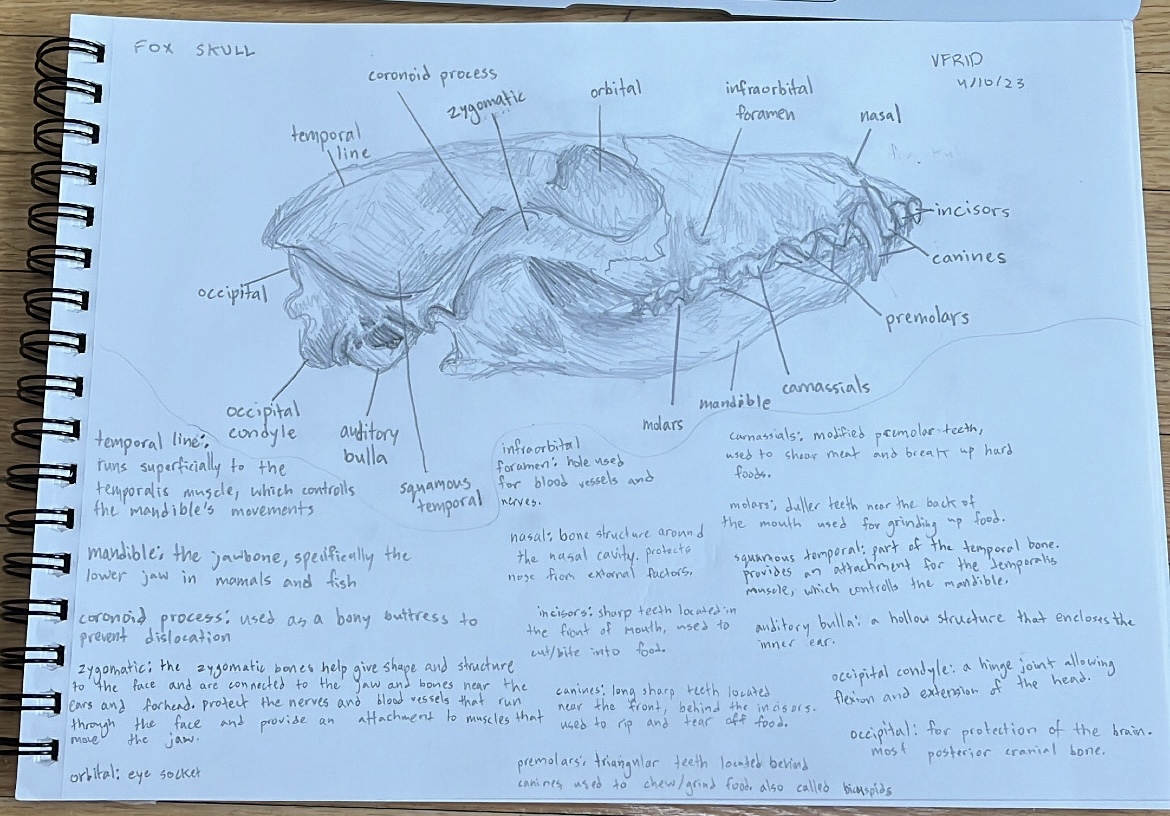 FOX SKULL
VFRID
4/10/23
coronoid process
zygomatic
orbital
infraorbital
foramen
nasal
temporal
line
incisors
canines
occipital
premolars
carnassials
mandible
molars
occipital
condyle
auditory
bulla
squamous
temporal
temporal line:
runs superficially to the
temporalis muscle, which controlls
the mandible's movements
mandible: the jawbone, specifically the
lower jaw in mamals and fish
coronoid process: used as a bony buttress to
prevent dislocation
zygomatic: the zygomatic bones help give shape and structure
to the face and are connected to the jaw and bones near the
ears and forhead. protect the nerves and blood vessels that run
through the face and provide an attachment to muscles that
move the jaw.
orbital: eye socket
infraorbital
foramen: hole used
for blood vessels and
nerves.
nasal: bone structure around
the nasal cavity. protects
nose from external factors.
incisors: sharp teeth located in
the front of mouth, used to
cut/bite into food.
canines: long sharp teeth located
near the front, behind the incisors.
used to rip and tear off food.
premolars: triangular teeth located behind
canines used to chew/grind food. also called bicuspids
carnassials: modified premolar teeth,
used to shear meat and break up hard
foods.
molars: duller teeth near the back of
the mouth used for grinding up food.
squamous temporal: part of the temporal bone.
provides an attachment for the temporalis
muscle, which controlls the mandible.
auditory bulla: a hollow structure that encloses the
inner ear.
occipital condyle: a hinge joint allowing
flexion and extension of the head.
occipital: for protection of the brain.
most posterior cranial bone.